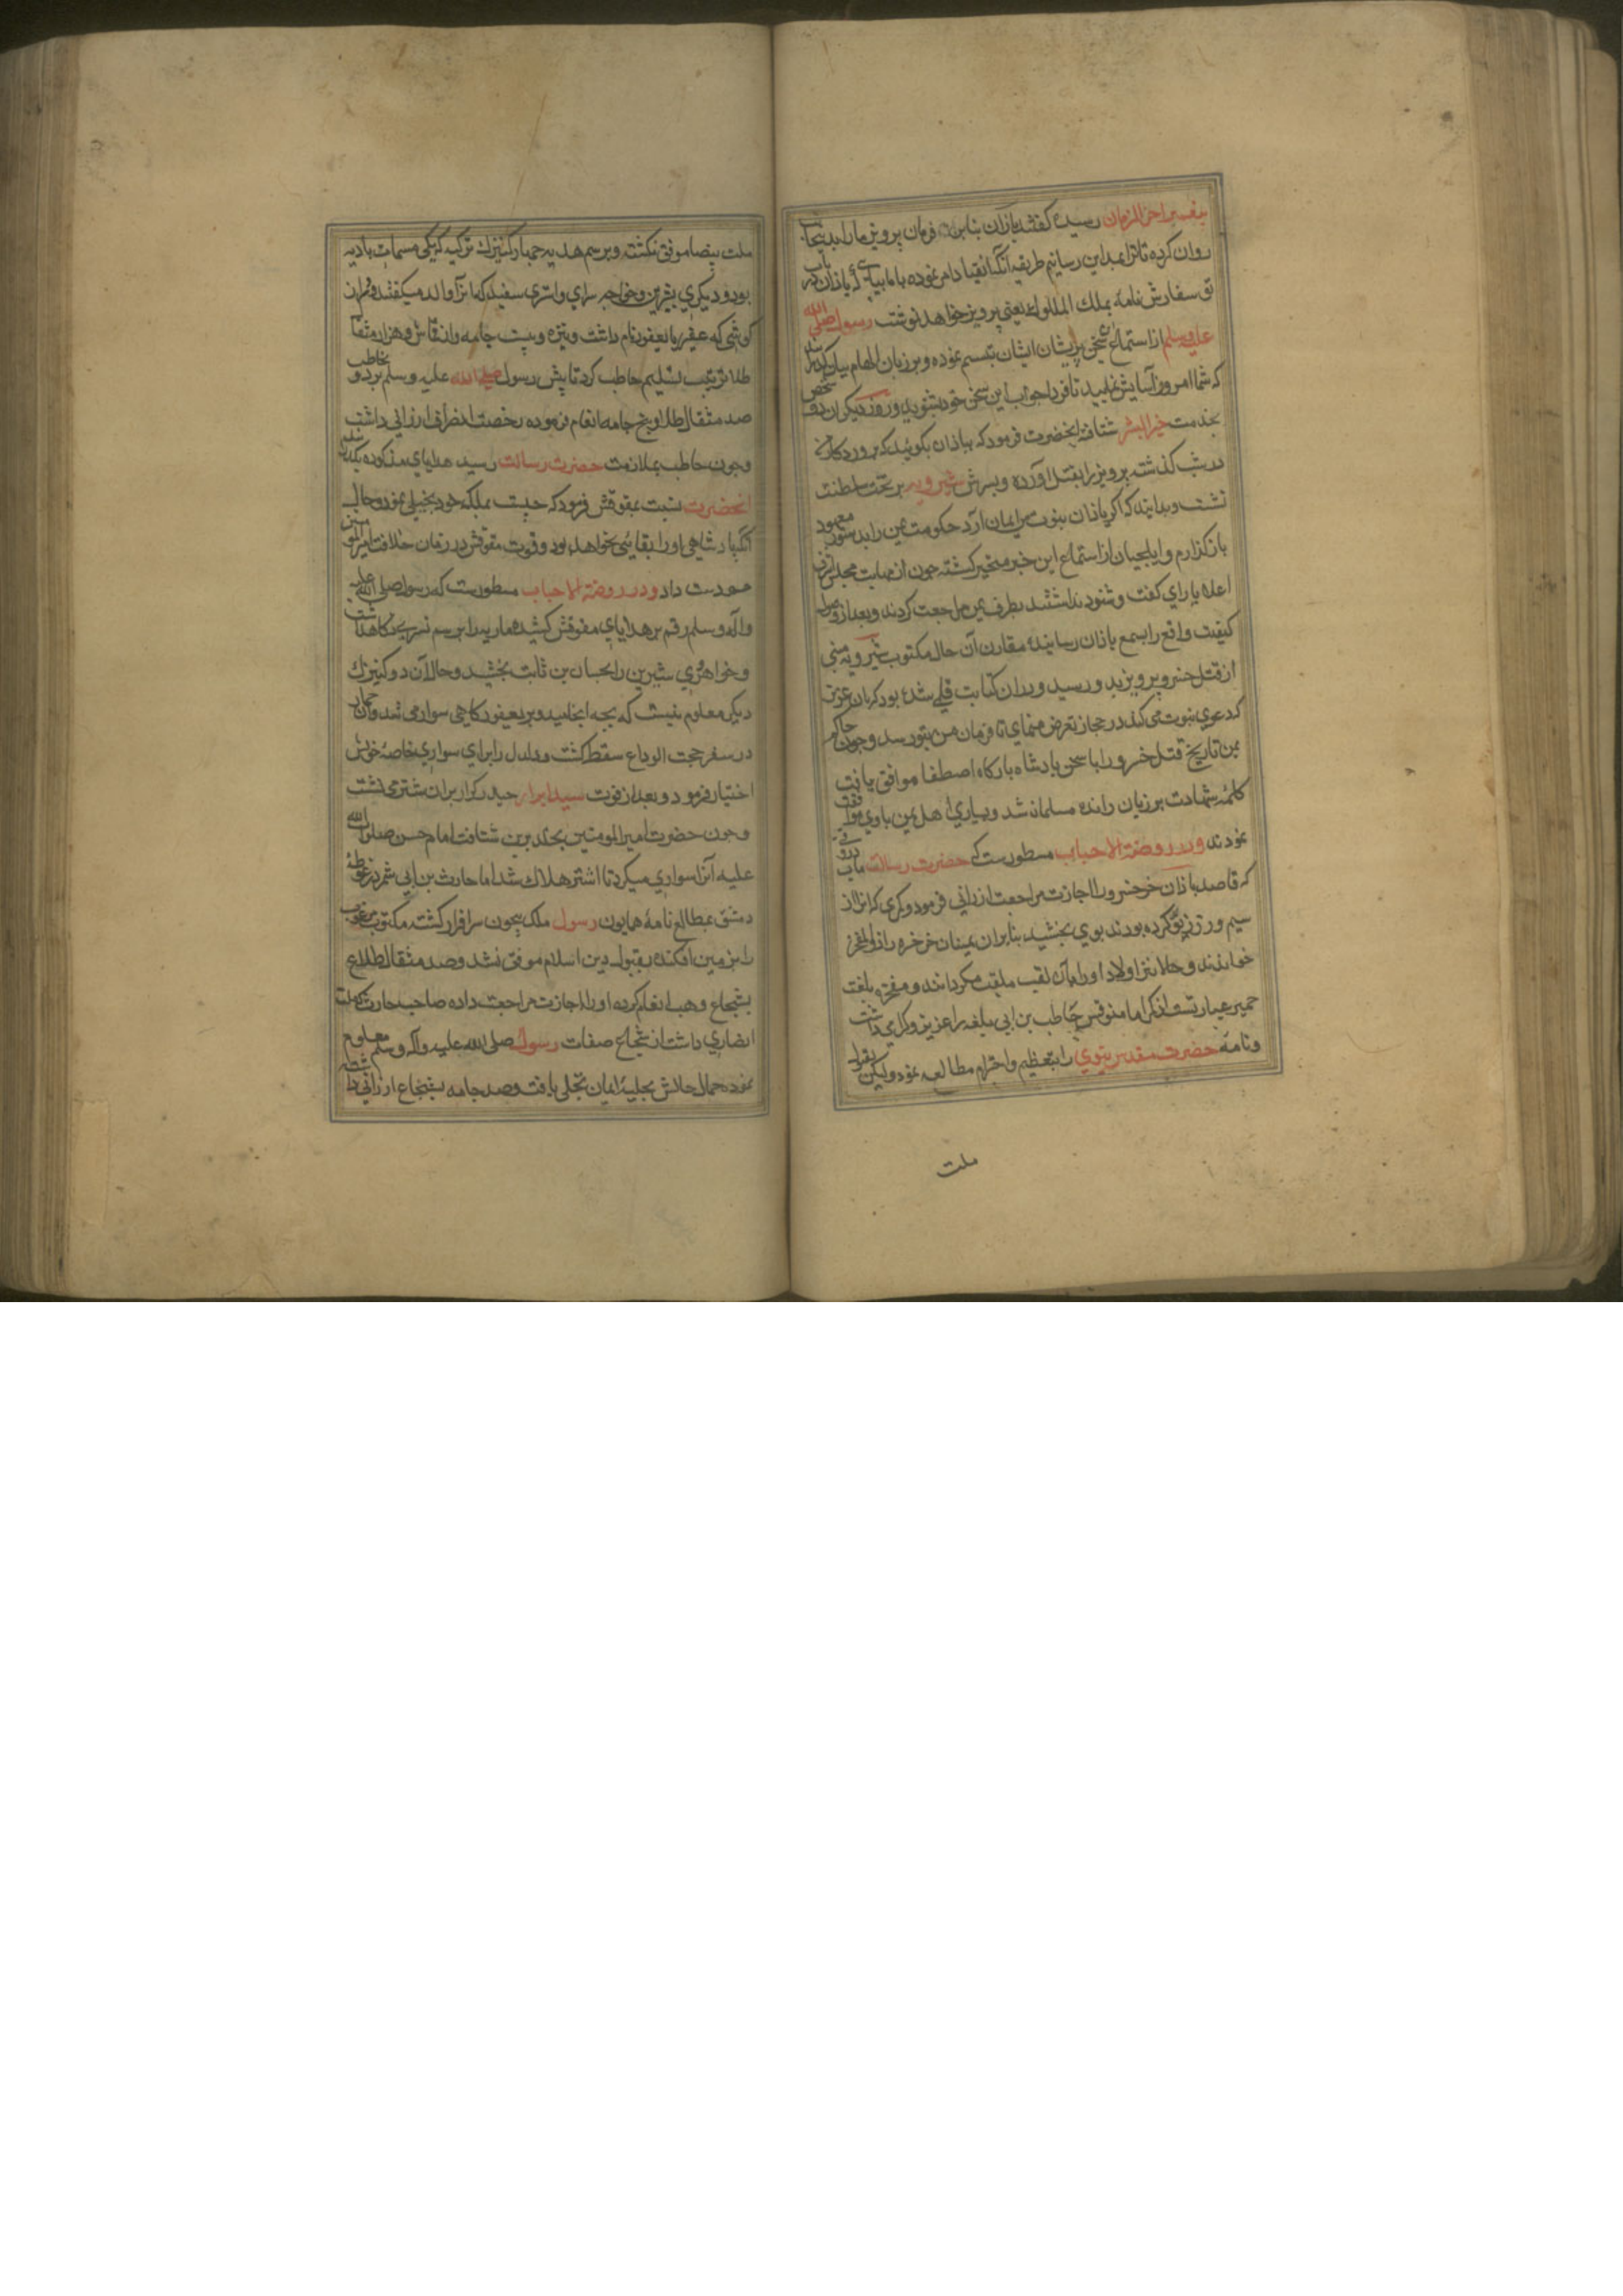 پیغمبر آخر الزمان رسیده گفتند باذان بنابر فرمان پرویز ما را بدینجانب
روان کرده تا ترا بمداین رسانیم طریقه آنکه انقیاد امر نموده با ما بیایی و باذان در باب
تو سفارش نامه بملک الملوک یعنی پرویز خواهد نوشت رسول صلی الله
علیه وسلم از استماع سخن پریشان ایشان تبسم نموده و بر زبان الهام بیان
که شما امروز آسایش نمایید تا فردا جواب این سخن خود بشنوید و روز دیگر آن دو شخص
بخدمت خیر البشر شتافته آنحضرت فرمود که بباذان بگوئید که پروردکار من
در شب گذشته پرویز را بقتل آورده و پسرش شیرویه بر تخت سلطنت
نشست و بدانید که اگر باذان بنبوت من ایمان آرد حکومت یمن را بدستور معهود
باز گذارم و ایلچیان از استماع این خبر متحیر گشته چون از مهابت مجلس اشرف
اعلا یارای گفت و شنود نداشتند بطرف یمن مراجعت کردند و بعد از وصول
کیفیت واقع را بسمع باذان رسانیده مقارن آن حال مکتوب شیرویه مبنی
از قتل خسرو پرویز بدو رسید و در آن کتابت قلمی شده بود که بآن عزیز
که دعوی نبوت می کند در حجاز تعرض منمای تا فرمان من بتو رسد و چون حاکم
یمن تاریخ قتل خسرو را با سخن پادشاه بارگاه اصطفا موافق یافت
کلمه شهادت بر زبان رانده مسلمان شد و بسیاری اهل یمن با وی موافقت
نمودند و در روضة الاحباب مسطورست که حضرت رسالت مآب در وقتی
که قاصد باذان خرخسرو را اجازت مراجعت ارزانی فرمود و کمری که آنرا از
سیم و زر زیور کرده بودند بوی بخشید بنابر آن یمنیان خرخره را ذو المفخر
خواندند و حالا نیز اولاد او را بآن لقب ملقب میگردانند و مفخره بلغت
حمیر عبارتست از کمر اما مقوقس حاطب بن ابی بلتعه را عزیز و گرامی داشت
و نامه حضرت مقدس نبوی را بتعظیم و احترام مطالعه نمود ولیکن بقبول
ملت
ملت بیضا موفق نگشته و برسم هدیه چهار کنیزک ترکیه که یکی مسمات بماریه
بود و دیگری بشیرین و خواجه سرای و استری سفید که آنرا دلدل میگفتند و دراز
گوشی که عفیر یا یعفور نام داشت و نیزه و بیست جامه وار قماش و هزار مثقال
طلا ترتیب تسلیم حاطب کرد تا پیش رسول صلی الله علیه وسلم برد و بحاطب
صد مثقال طلا و پنج جامه انعام فرموده رخصت انصراف ارزانی داشت
و چون حاطب بملازمت حضرت رسالت رسید هدایای مذکوره بگذرانید
آنحضرت نسبت بمقوقش فرمود که خبیث بملکه خود بخیلی نمود و حال
آنکه پادشاهی او را بقائی نخواهد بود و فوت مقوقش در زمان خلافت امیر المومنین
عمر دست داد و در روضة الاحباب مسطورست که رسول صلی الله علیه
و آله وسلم رقم بر هدایای مقوقش کشیده ماریه را برسم سریه نگاه داشت
و خواهر وی شیرین را بحسان بن ثابت بخشید و حال آن دو کنیزک
دیگر معلوم نیست که بچه انجامید و بر یعفور گاهی سوار می شد و آن حمار
در سفر حجت الوداع سقط گشت و دلدل را برای سواری خاصه خویش
اختیار فرمود و بعد از فوت سید ابرار حیدر کرار بر آن شتر می نشست
و چون حضرت امیر المومنین بخلد برین شتافت امام حسن صلوات الله
علیه آنرا سواری میکرد تا اشتر هلاک شد اما حارث بن ابی شمر در غوطه
دمشق بمطالع نامه همایون رسول ملک بیچون سرافراز گشته مکتوب مرغوب
را بر زمین افکنده بقبول دین اسلام موفق نشد و صد مثقال طلا
بشجاع وهب انعام کرده او را اجازت مراجعت داده صاحب حارث که ملت
انصاری داشت از شجاع صفات رسول صلی الله علیه وآله وسلم معلوم
نموده جمال حالش بحلیه ایمان تجلی یافت و صد جامه بشجاع ارزانی داشته